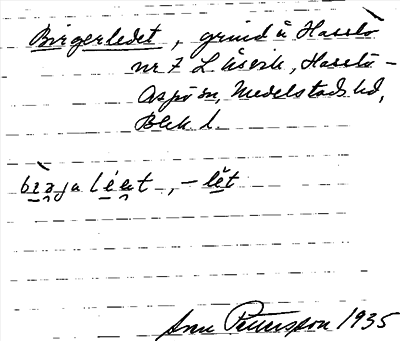 Birgerledet, grind å Hasslö
nr 7 L. Åsvik, Hasslö –
Aspö sn, Medelstads hd,
Blek. l.
bìrja léet, – lèt
Petersson 1935